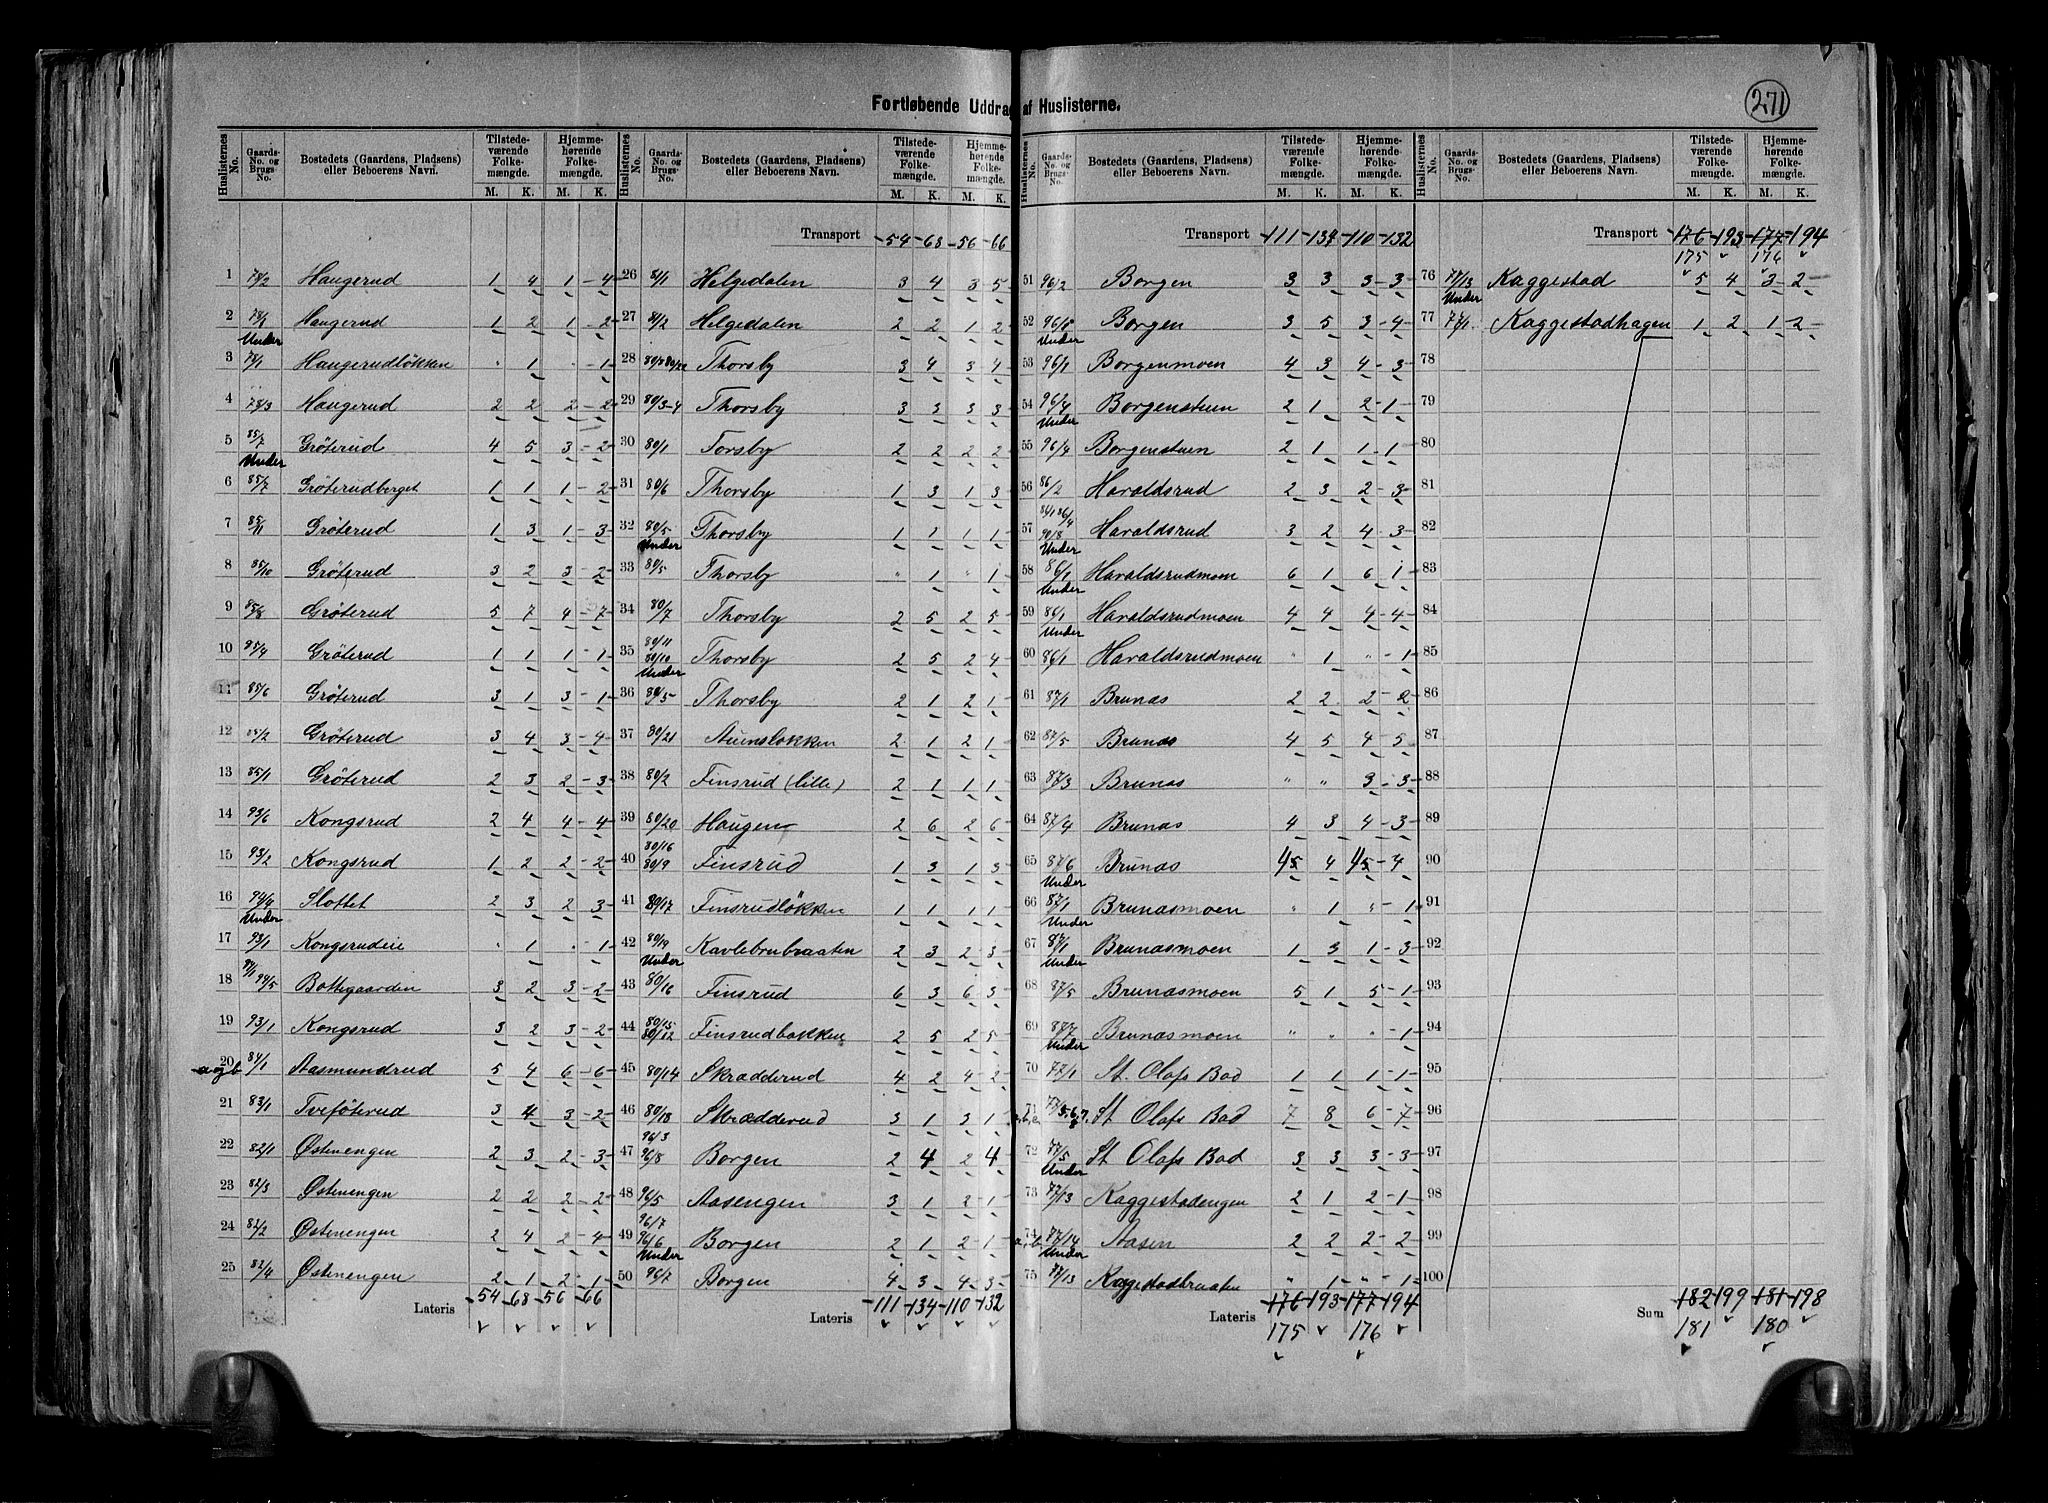 271
Fortløbende Uddrag af Huslisterne.
Huslisternes No. Gaards-No. og Brugs-No. Bostedets (Gaardens, Pladsens) eller Beboerens Navn. Tilstedeværende Folkemængde. M. K. Hjemmehørende Folkemængde. M. K.
1 78/2 Haugerud 1 4 1 4
2 78/1 Haugerud 1 2 1 2
3 Under 78/1 Haugerudløkken " 1 " 1
4 78/3 Haugerud 2 2 2 2
5 85/7 Grøterud 4 5 3 2
6 Under 85/7 Grøterudberget 1 1 1 2
7 85/11 Grøterud 1 3 1 3
8 85/10 Grøterud 3 2 3 2
9 85/8 Grøterud 5 7 4 7
10 85/4 Grøterud 1 1 1 1
11 85/6 Grøterud 3 1 3 1
12 85/2 Grøterud 3 4 3 4
13 85/1 Grøterud 2 3 2 3
14 93/6 Kongsrud 2 4 4 4
15 93/2 Kongsrud 1 2 2 2
16 94/4 Slottet 2 3 2 3
17 Under 93/1 Kongsrudeie " 1 " 1
18 94/1 94/5 Bottegaarden 3 2 3 2
19 93/1 Kongsrud 3 2 3 2
20 a og b 84/1 Aasmundrud 5 4 6 6
21 83/1 Tveføterud 3 4 3 2
22 82/1 Østenengen 2 3 2 3
23 82/3 Østenengen 2 2 2 2
24 82/2 Østenengen 2 4 2 4
25 82/4 Østenengen 2 1 2 1
Lateris 54 68 56 66
Huslisternes No. Gaards-No. og Brugs-No. Bostedets (Gaardens, Pladsens) eller Beboerens Navn. Tilstedeværende Folkemængde. M. K. Hjemmehørende Folkemængde. M. K.
Transport 54 68 56 66
26 81/1 Helgedalen 3 4 3 5
27 81/2 Helgedalen 2 2 1 2
28 80/3 80/22 Thorsby 3 4 3 4
29 80/3-4 Thorsby 3 3 3 3
30 80/1 Torsby 2 2 2 2
31 80/6 Thorsby 1 3 1 3
32 80/5 Thorsby 1 1 1 1
33 Under 80/5 Thorsby " 1 " 1
34 80/7 Thorsby 2 5 2 5
35 80/11 80/10 Thorsby 2 5 2 4
36 Under 80/5 Thorsby 2 1 2 1
37 80/21 Stunsløkken 2 1 2 1
38 80/2 Finsrud (lille) 2 1 1 1
39 80/20 Haugen 2 6 2 6
40 80/16 80/9 Finsrud 1 3 1 3
41 80/17 Finsrudløkken 1 1 1 1
42 80/19 Kavlebrubraaten 2 3 2 3
43 Under 80/16 Finsrud 6 3 6 3
44 80/15 80/12 Finsrudbakken 2 5 2 5
45 80/14 Skradderud 4 2 4 2
46 80/18 Skrædderud 3 1 3 1
47 96/3 96/8 Borgen 2 4 2 4
48 96/5 Aasengen 3 1 3 1
49 96/7 96/6 Borgen 2 1 2 1
50 Under 96/7 Borgen 4 3 4 3
Lateris 111 134 110 132
Huslisternes No. Gaards-No. og Brugs-No. Bostedets (Gaardens, Pladsens) eller Beboerens Navn. Tilstedeværende Folkemængde. M. K. Hjemmehørende Folkemængde. M. K.
Transport 111 134 110 132
51 96/2 Borgen 3 3 3 3
52 96/1 Borgen 3 5 3 4
53 Under 96/1 Borgenmoen 4 3 4 3
54 96/4 Borgenstuen 2 1 2 1
55 Under 96/4 Borgenstuen 2 1 1 1
56 86/2 Haraldsrud 2 3 2 3
57 86/1 86/4 90/8 Haraldsrud 3 2 4 3
58 Under 86/1 Haraldsrudmoen 6 1 6 1
59 Under 86/1 Haraldsrudmoen 4 4 4 4
60 Under 86/1 Haraldsrudmoen " 1 " 1
61 87/1 Brunas 2 2 2 2
62 87/5 Brunas 4 5 4 5
63 87/3 Brunas " " 3 3
64 87/4 Brunas 4 3 4 3
65 87/6 Brunas 4 4 4
66 Under 87/1 Brunasmoen " 1 " 1
67 Under 87/1 Brunasmoen 1 3 1 3
68 Under 87/5 Brunasmoen 5 1 5 1
69 87/7 Brunasmoen " " " 1
70 Under 77/1 St. Olafs Bad 1 1 1 1
71 77/5,6,7,8 St Olafs Bad 7 8 6 7
72 77/5 St Olafs Bad 3 3 3 3
73 Under 77/13 Kaggestadengen 2 1 2 1
74 a, b 77/14 Aasen 2 2 2 2
75 Under 77/13 Kaggestadbraaten " 1 " 1
Lateris 176 193 177 194
175 176
Huslisternes No. Gaards-No. og Brugs-No. Bostedets (Gaardens, Pladsens) eller Beboerens Navn. Tilstedeværende Folkemængde. M. K. Hjemmehørende Folkemængde. M. K.
Transport 176 193 177 194
175 176
76 77/13 Kaggestad 5 4 3 2
77 Under 77/1 Kaggestadhagen 1 2 1 2
78
79
80
81
82
83
84
85
86
87
88
89
90
91
92
93
94
95
96
97
98
99
100
Sum 182 199 181 198
181 180